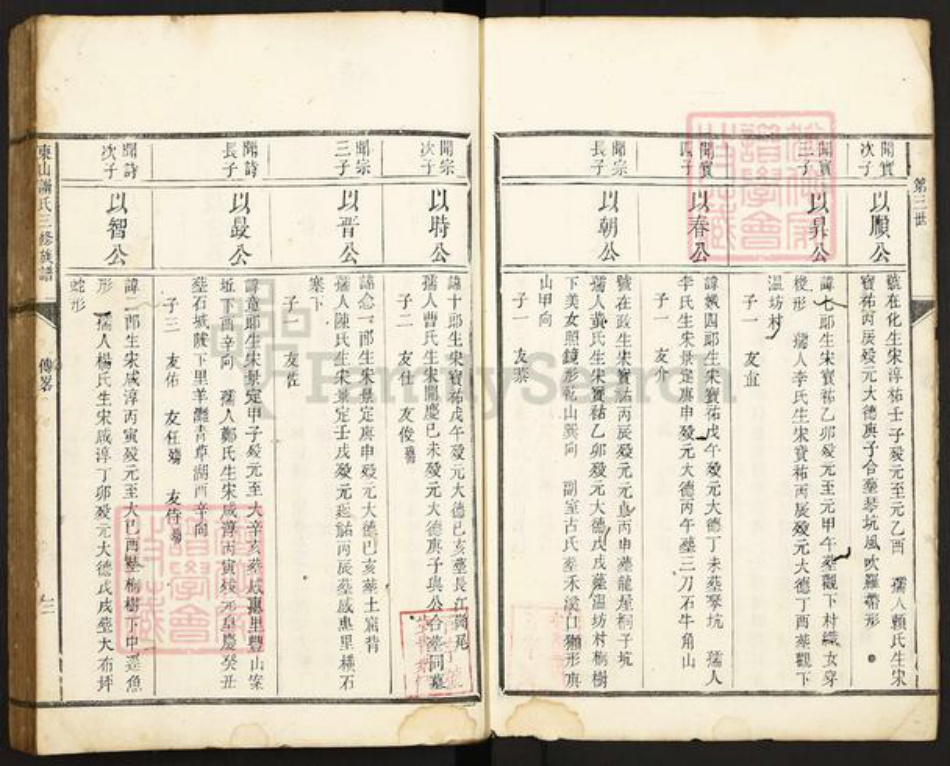 第三世
開寶次子
以順公
號在化生宋淳祐壬子歿元至元乙酉 孺人賴氏生宋
寶祐丙辰歿元大德庚子合塟琴坑風吹羅帶形
開寶三子
以昇公
諱七郎生宋寶祐乙卯歿元至元甲午塟觀下村織女穿
梭形 孺人李氏生宋寶祐丙辰歿元大德丁酉塟觀下
溫坊村
子一 友宜
開寶四子
以春公
諱娥四郎生宋寶祐戊午歿元大德丁未塟琴坑 孺人
李氏生宋景定庚申歿元大德丙午塟二刀石牛角山
子一 友介
開宗長子
以朝公
號在政生宋寶祐丙辰歿元元貞丙申塟龍屋桐子坑
孺人黃氏生宋寶祐乙卯歿元大德戊戌塟溫坊村桐樹
下美女照鏡形乾山巽向 副室古氏塟禾溪口獺形庚
山甲向
子一 友蔡
開宗次子
以時公
諱十郎生宋寶祐戊午歿元大德己亥塟長江
孺人曹氏生宋開慶己未歿元大德庚子與公合塟同墓
子二 友仕 友俊
開宗三子
以晋公
諱念一郎生宋景定庚申歿元大德己亥塟土窩背
孺人陳氏生宋景定壬戌歿元延祐丙辰塟感惠里橫石
寨下
子一 友佐
開詩長子
以晸公
諱童郎生宋景定甲子歿元至大辛亥塟感惠里豐山寨
坵下酉辛向 孺人鄭氏生宋咸淳丙寅歿元皇慶癸丑
塟石城陂下里羊灘青草湖酉辛向
子三 友佑 友任 友侍
開詩次子
以智公
諱二郎生宋咸淳丙寅歿元至大己酉塟桐樹下中邊魚
形 孺人楊氏生宋咸淳丁卯歿元大德戊戌塟大布坪
蛇形
東山蕭氏三修族譜
傳畧
FamilySearch